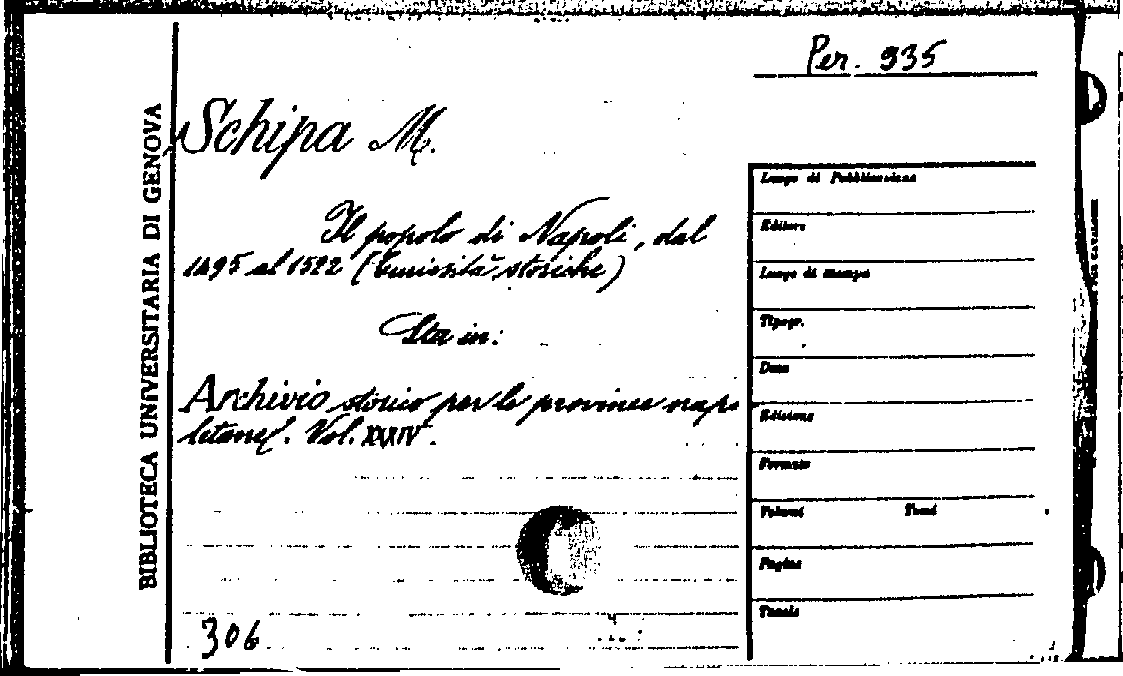 Per. 935
BIBLIOTECA UNIVERSITARIA DI GENOVA
Schipa M.
Il popolo di Napoli, dal
1495 al 1522 (Curiosità storiche)
Sta in:
Archivio storico per le province napo
letane. Vol. XXXIV.
306
Luogo di Pubblicazione
Editore
Luogo di stampa
Tipogr.
Data
Edizione
Formato
Volumi Tomi
Pagine
Tavole